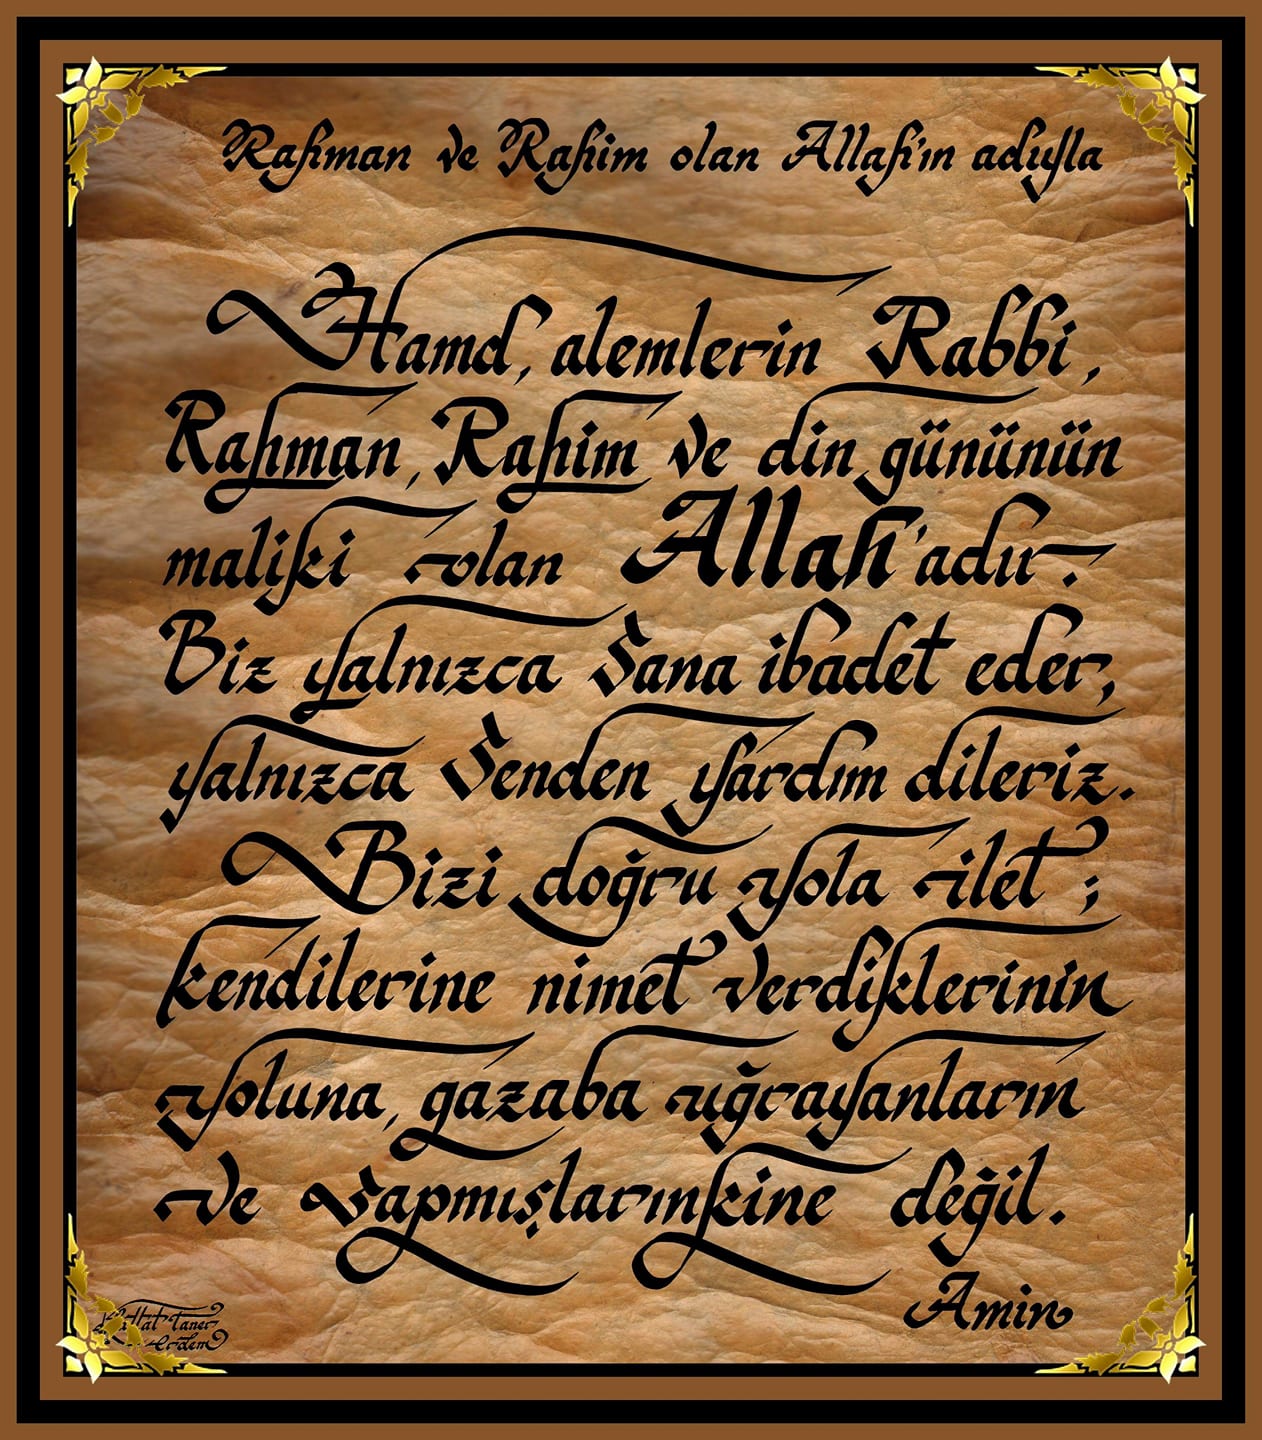 Rahman ve Rahim olan Allah'ın adıyla
Hamd, alemlerin Rabbi,
Rahman, Rahim ve din gününün
maliki olan Allah'adır.
Biz yalnızca Sana ibadet eder,
yalnızca Senden yardım dileriz.
Bizi doğru yola ilet;
kendilerine nimet verdiklerinin
yoluna, gazaba uğrayanların
ve sapmışlarınkine değil.
Amin
Hattat taner
erdem